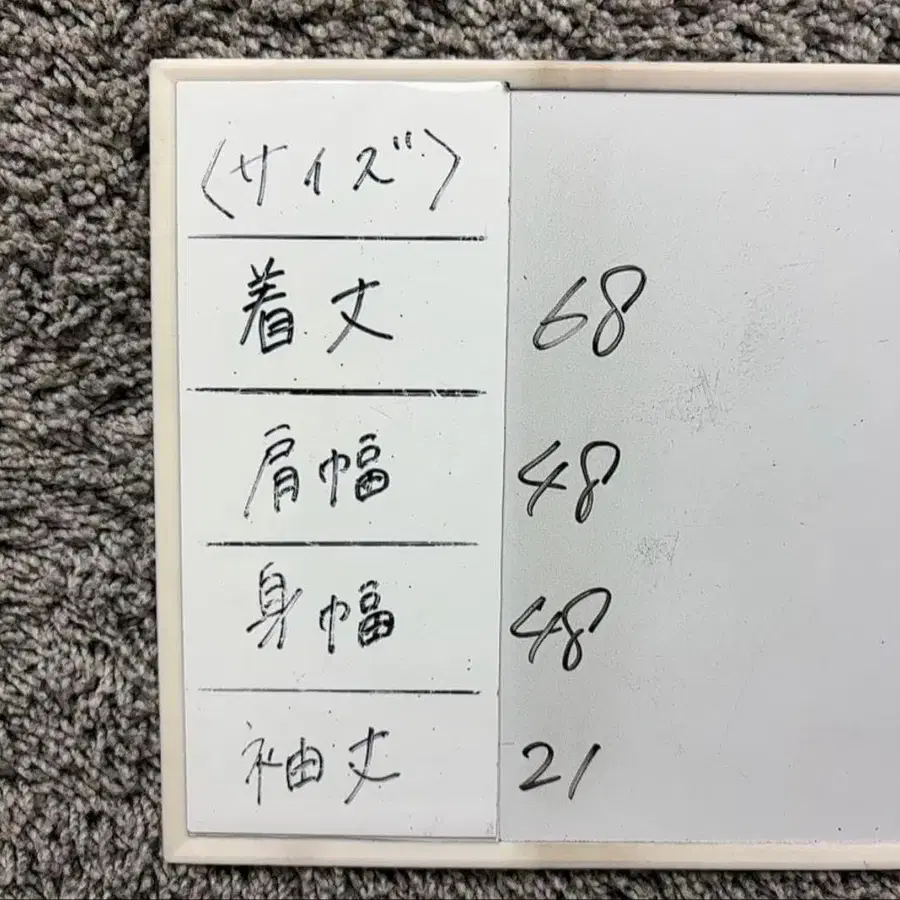 〈サイズ〉
着丈 68
肩幅 48
身幅 48
袖丈 21